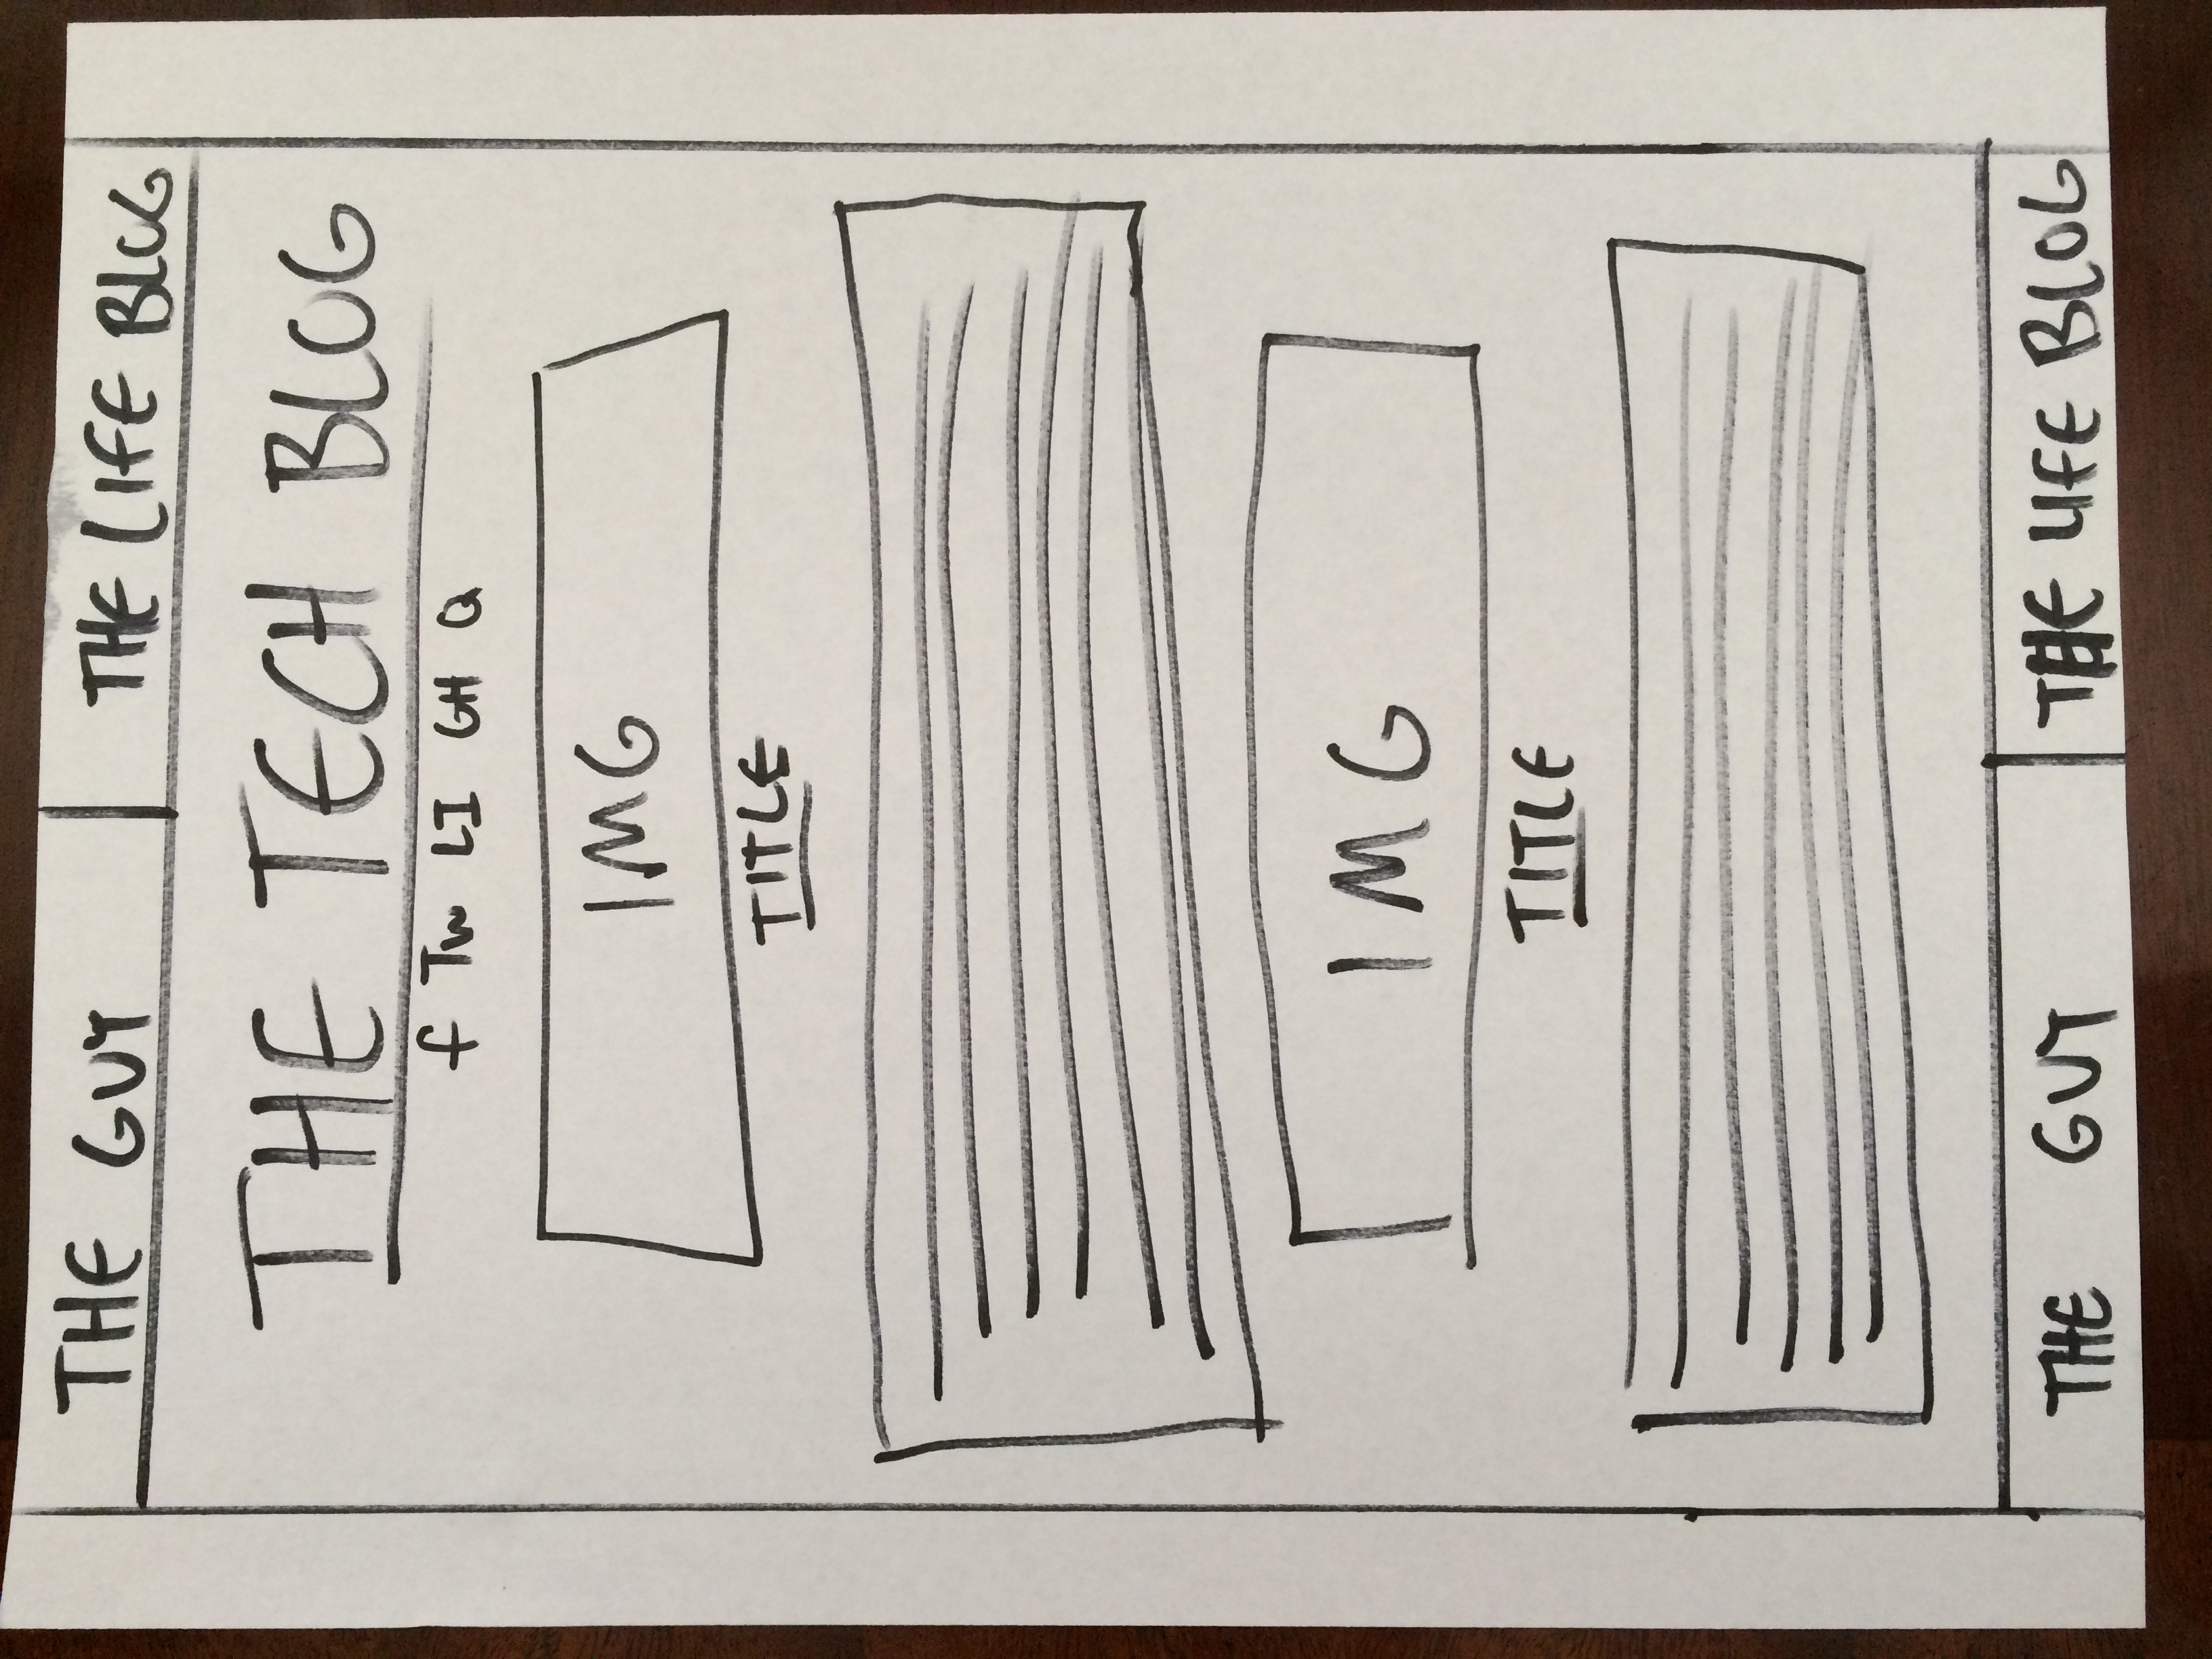 THE GUY THE LIFE BLOG
THE TECH BLOG
f Tw LI GH Q
IMG
TITLE
IMG
TITLE
THE GUY THE LIFE BLOG